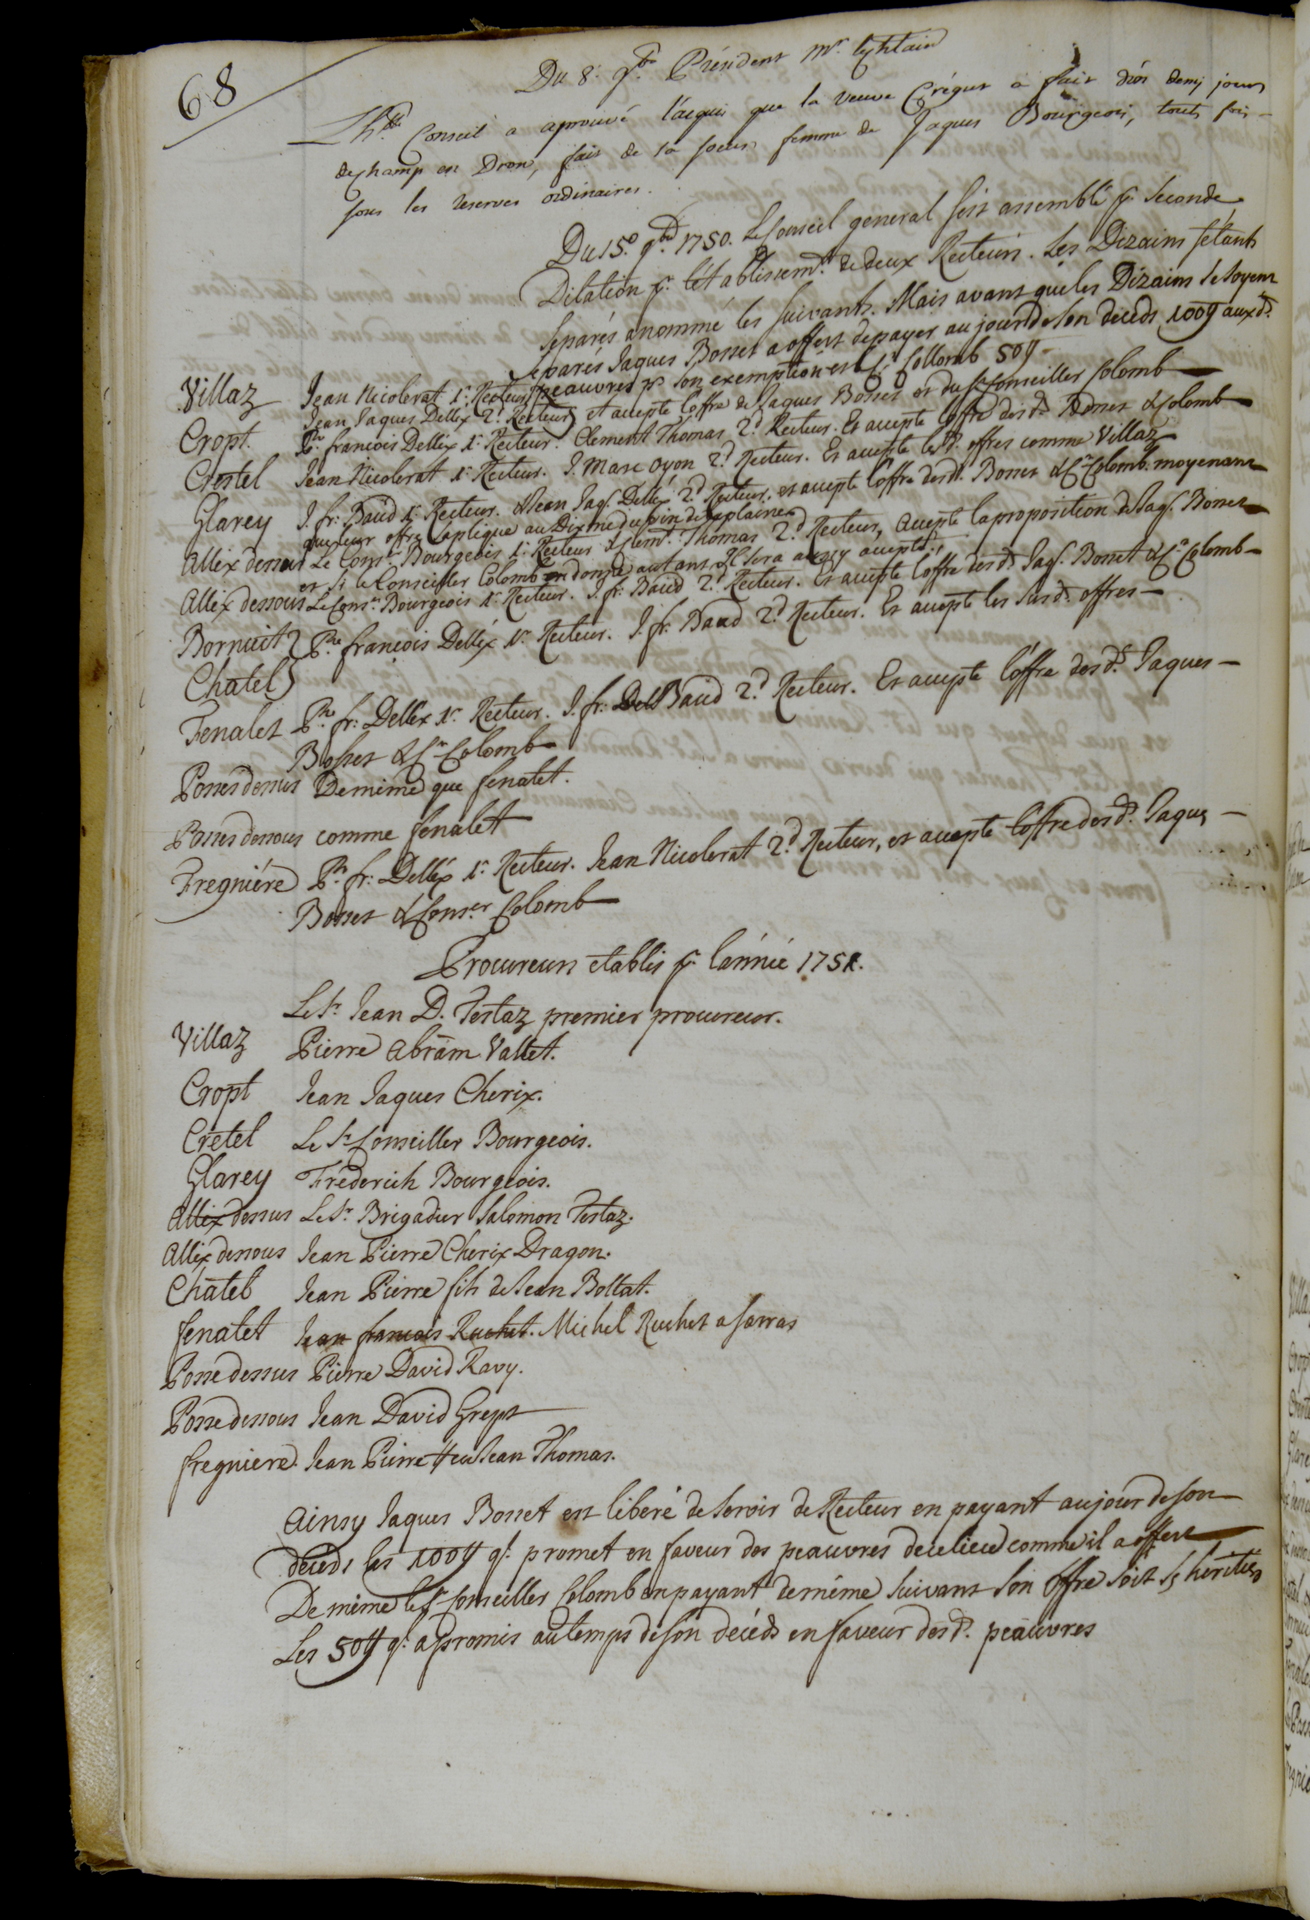 68
Du 8e 9bre Président Mr. 
Lhble Conseil a aprouvé l'acquis que la veuve Crégut a fait d'ès demj jour
dechamp en Dron, fait de sa soeur, femme de Jaques Bourgeois, touts fois
sous les reserves ordinaires.
Du 15e. 9bre 1750. Le Conseil general s'est assemblé pr. seconde
Dilation pr. l'établissemt. de deux Recteurs. Les Dizains s'étants
separés a nommé les suivants. Mais avant que les Dizains se soyent
separés Jaques Bosset a offert depayer au jour de son décéds 100ff aux d.
peauvres pr. son exemption et le Sr. Collomb 50ff
Villaz Jean Nicolerat 1r. Recteur
Jean Jaques Delléx 2d. Recteur et accepte l'offre de Jaques Bosset et du Sr. Conseiller Colomb
Cropt. Pre. francois Delléx 1r. Recteur. Clement Thomas 2d. Recteur. Et accepte l'offre desds. Bosset & Colomb
Crettel Jean Nicolerat 1r. Recteur. J. Marc Oyon 2d. Recteur. Et accepte lesd. offres comme Villaz
Glarey J. fr: Baud 1r. Recteur. & Jean Jaq. Delléx 2d. Recteur. et accepte l'offre desd. Bosset & Sr. Colomb. moyenant
que leur offre s'aplique au Dixme du vin de la plaine
Alléx dessus Le Consr. Bourgeois 1r. Recteur & Clemt. Thomas 2d. Recteur, accepte la proposition de Jaq. Bosset
et si le Conseiller Colomb en donne autant, Il sera aussy accepté.
Alléx dessous Le Consr. Bourgeois 1r. Recteur. J. fr: Baud 2d. Recteur. Et accepte l'offre desd. Jaq. Bosset & Sr. Colomb
Bornuit
Chatel Pre. françois Delléx 1r. Recteur. J. fr: Baud 2d. Recteur. Et accepte les susd. offres
Fenalet Pre. fr: Delléx 1r. Recteur. J. fr: Baud 2d. Recteur. Et accepte l'offre desd. Jaques
Bosset & Sr. Colomb
Posses dessus Demême que fenalet.
Posses dessous comme fenalet
Fregniére Pre. fr: Delléx 1r. Recteur. Jean Nicolerat 2d. Recteur, et accepte l'offre desd. Jaques
Bosset & Conser Colomb
Procureurs etablis pr. l'année 1751.
Le Sr. Jean D. Testaz premier procureur.
Villaz Pierre Abram Vallet.
Cropt Jean Jaques Cherix.
Cretel Le Sr. Conseiller Bourgeois.
Glarey Fréderich Bourgeois.
Alléx dessus Le Sr. Brigadier Salomon Testaz.
Alléx dessous Jean Pierre Cherix Dragon.
Châtel Jean Pierre fils de Jean Bottat.
fenalet Jean francois Ruchet. Michel Ruchet a sarras
Posse dessus Pierre David Ravy.
Posse dessous Jean David Grept
fregniere. Jean Pierre ffeu Jean Thomas.
Ainsy Jaques Bosset est liberé de servir de Recteur en payant aujour de son
décéds les 100ff q'l. promet en faveur des peauvres de ce lieu comme il a offert
De même le Sr. Conseiller Colomb en payant de même suivant son offre soit ses héritiers
Les 50ff q'l. a promis au temps de son décéds en faveur desd. peauvres